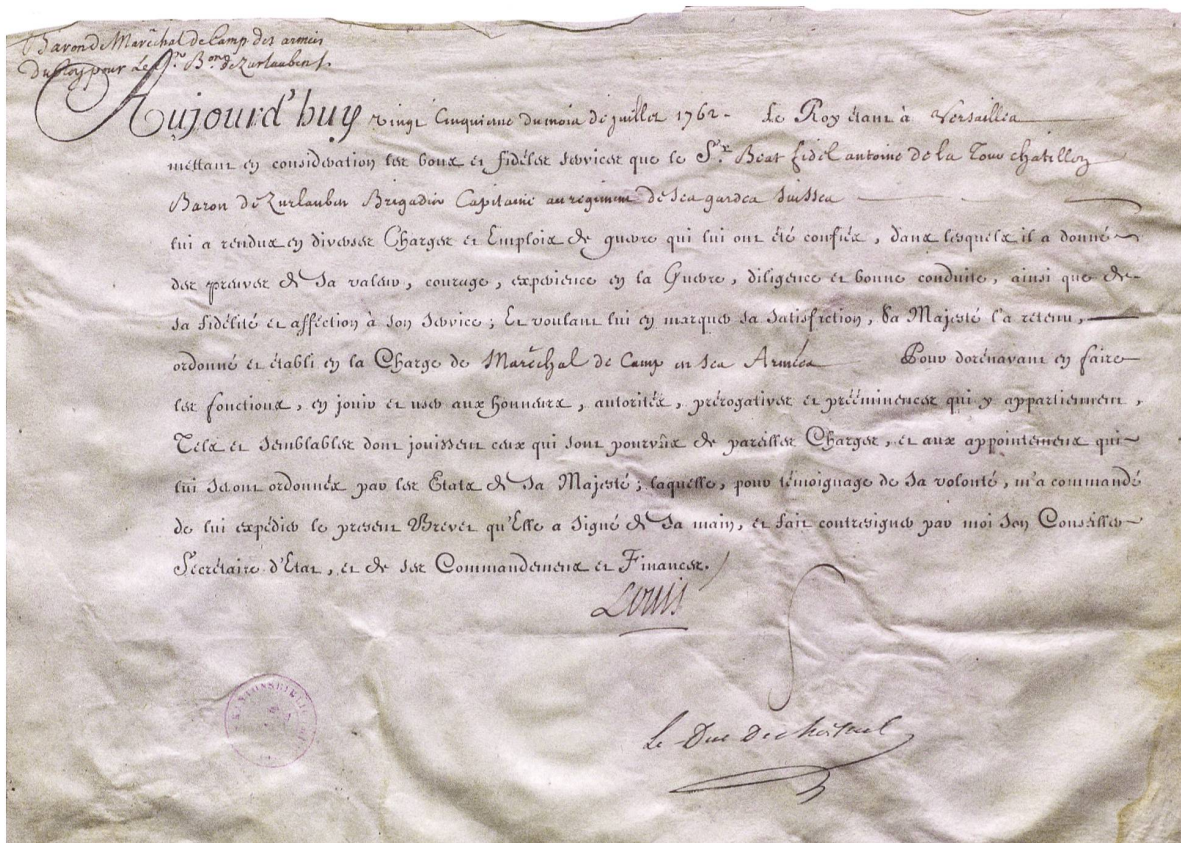 de Maréchal de Camp des armées
Du Roy pour Le Sr. Bon. de Zurlauben
Aujourd'huy vingt Cinquieme du mois de juillet 1762 - Le Roy étant à Versailles
mettant en considération les bons et fidéles services que le Sr. Béat fidel antoine de la Tour chatillon
Baron de Zurlauben Brigadier Capitaine au regiment de ses gardes suisses
lui a rendus en diverses Charges et Emplois de guerre qui lui ont été confiés, dans lesquels il a donné
des preuves de Sa valeur, courage, expérience en la Guerre, diligence et bonne conduite, ainsi que de
sa fidélité et affection à son service; Et voulant lui en marquer sa satisfaction, Sa Majesté l'a retenu,
ordonné et établi en la Charge de Maréchal de Camp en ses Armées Pour dorénavant en faire
les fonctions, en jouir et user aux honneurs, autorités, prérogatives et prééminences qui y appartiennent,
Tels et semblables dont jouissent ceux qui sont pourvûs de pareilles Charges, et aux appointemens qui
lui seront ordonnés par les Etats de Sa Majesté; laquelle, pour témoignage de sa volonté, m'a commandé
de lui expédier le présent Brevet qu'Elle a signé de Sa main, et fait contresigner par moi son Conseiller
Sécrétaire d'Etat, et de ses Commandemens et Finances.
Louis
Le Duc De choiseul